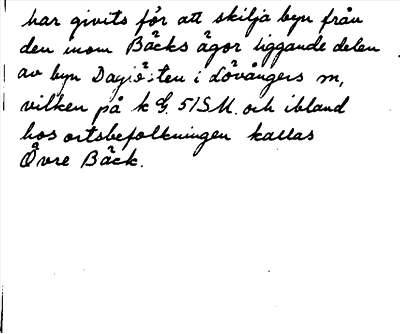 har givits för att skilja byn från
den inom Bäcks ägor liggande delen
av byn i Lövångers sn,
vilken på k 51SM. och ibland
hos ortsbefolkningen kallas
Övre Bäck.